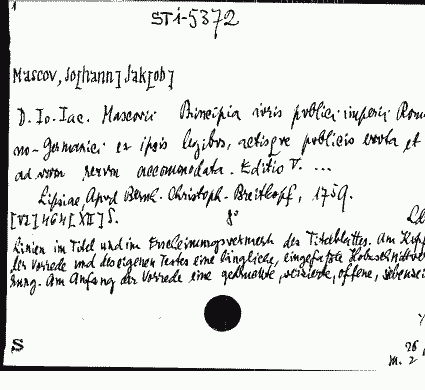 1
STI-5372
Mascov, Jo[hann] Jak[ob]
D. Io. Iac. Mascovii Principia iuris publici imperii Roma
no-Germanici ex ipsis legibus, actisqve publicis ervta et
ad vsvm rervm accommodata. Editio V. ...
Lipsiae, Apvd Bernh. Christoph. Breitkopf, 1759.
[VI] 464 [XII] S. 8°
Linien im Titel und im Erscheinungsvermerk des Titelblattes. Am Kopf
der Vorrede und des eigenen Textes eine längliche, eingefaßte Holzschnittver
rung. Am Anfang der Vorrede eine gedruckte, verzierte, offene,
S
26
m. 2